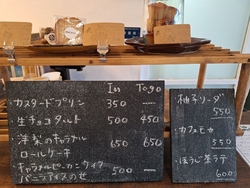 In Togo
・カスタードプリン 350 ―
・生チョコタルト 500 450
・洋梨のキャラメル
ロールケーキ 650 650
・キャラメルピーカンケイク
バニラアイスのせ 500 ―
・柚子ソーダ
550
・カフェモカ
550
・ほうじ茶ラテ
600